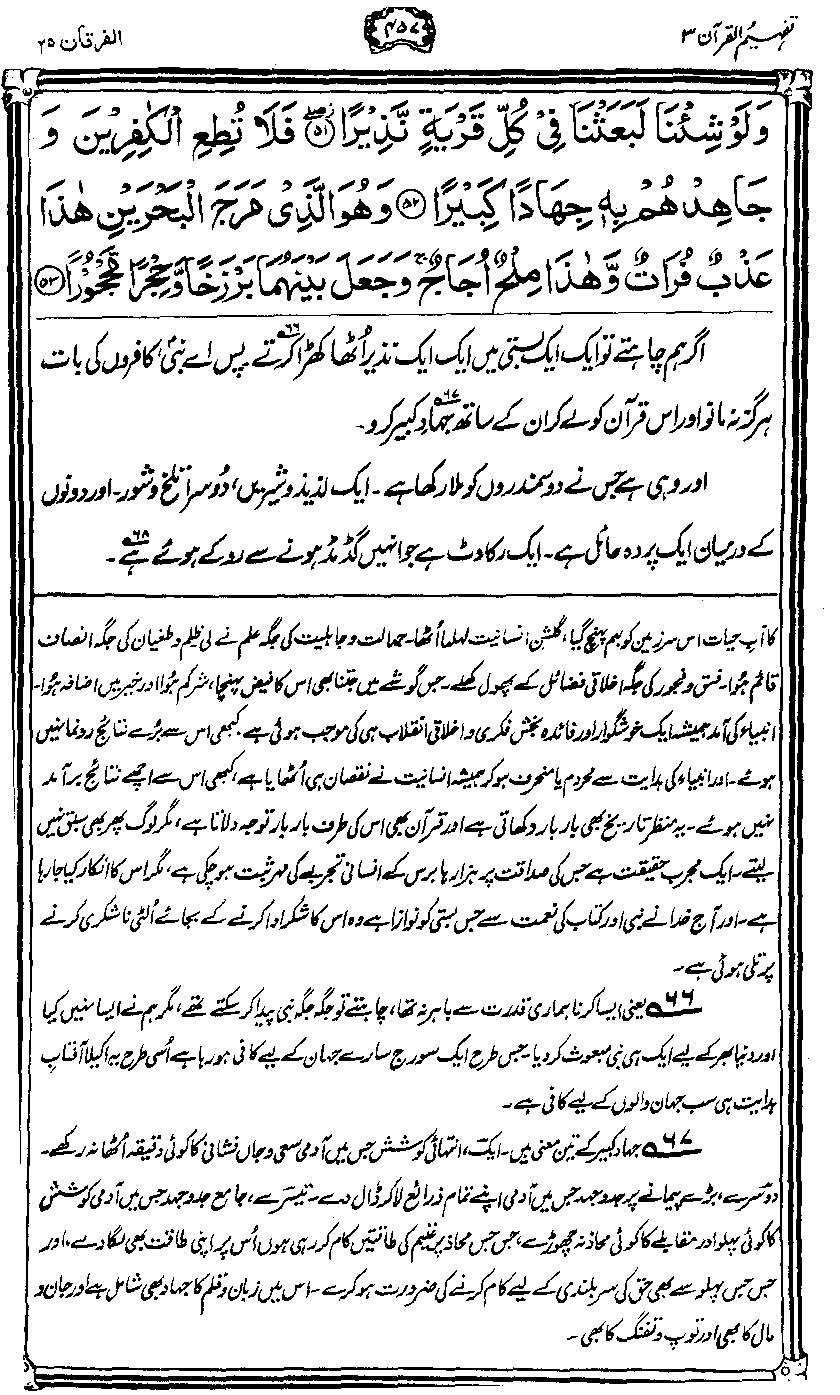 تفہیم القرآن ۳
۴۵۷
الفرقان ۲۵
وَلَوْ شِئْنَا لَبَعَثْنَا فِیْ كُلِّ قَرْیَةٍ نَّذِیْرًا ﴿۵۱﴾ فَلَا تُطِعِ الْكٰفِرِیْنَ وَ
جَاهِدْهُمْ بِهٖ جِهَادًا كَبِیْرًا ﴿۵۲﴾ وَهُوَ الَّذِیْ مَرَجَ الْبَحْرَیْنِ هٰذَا
عَذْبٌ فُرَاتٌ وَّهٰذَا مِلْحٌ اُجَاجٌ ۚ وَجَعَلَ بَیْنَهُمَا بَرْزَخًا وَّحِجْرًا مَّحْجُوْرًا ﴿۵۳﴾
اگر ہم چاہتے تو ایک ایک بستی میں ایک ایک نذیر اُٹھا کھڑا کرتے۶۶ پس اے نبیؐ، کافروں کی بات
ہرگز نہ مانو اور اس قرآن کو لے کر ان کے ساتھ جہادِ کبیر۶۷ کرو۔
اور وہی ہے جس نے دو سمندروں کو ملا رکھا ہے۔ ایک لذیذ و شیریں، دُوسرا تلخ و شور۔ اور دونوں
کے درمیان ایک پردہ حائل ہے۔ ایک رکاوٹ ہے جو انہیں گڈمڈ ہونے سے روکے ہوئے ہے۶۸۔
کا آبِ حیات اس سرزمین کو بہم پہنچ گیا، گلشنِ انسانیت لہلہا اُٹھا۔ جہالت و جاہلیت کی جگہ علم نے لی ظلم و طغیان کی جگہ انصاف
قائم ہُوا۔ فسق و فجور کی جگہ اخلاقی فضائل کے پھول کھلے۔ جس گوشے میں جتنا بھی اس کا فیض پہنچا، شر کم ہُوا اور خیر میں اضافہ ہُوا۔
انبیاء کی آمد ہمیشہ ایک خوشگوار اور فائدہ بخش فکری و اخلاقی انقلاب ہی کی موجب ہوئی ہے، کبھی اس سے بُرے نتائج رونما نہیں
ہوئے۔ اور انبیاء کی ہدایت سے محروم یا منحرف ہو کر ہمیشہ انسانیت نے نقصان ہی اُٹھایا ہے، کبھی اس سے اچھے نتائج برآمد
نہیں ہوئے۔ یہ منظر تاریخ بھی بار بار دکھاتی ہے اور قرآن بھی اس کی طرف بار بار توجہ دلاتا ہے، مگر لوگ پھر بھی سبق نہیں
لیتے۔ ایک مجرب حقیقت ہے جس کی صداقت پر ہزارہا برس کے انسانی تجربے کی مہر ثبت ہو چکی ہے، مگر اس کا انکار کیا جا رہا
ہے۔ اور آج خدا نے نبی اور کتاب کی نعمت سے جس بستی کو نوازا ہے وہ اس کا شکر ادا کرنے کے بجائے اُلٹی ناشکری کرنے
پر تلی ہوئی ہے۔
۶۶ یعنی ایسا کرنا ہماری قدرت سے باہر نہ تھا، چاہتے تو جگہ جگہ نبی پیدا کر سکتے تھے، مگر ہم نے ایسا نہیں کیا
اور دنیا بھر کے لیے ایک ہی نبی مبعوث کر دیا۔ جس طرح ایک سورج سارے جہان کے لیے کافی ہو رہا ہے اُسی طرح یہ اکیلا آفتابِ
ہدایت ہی سب جہان والوں کے لیے کافی ہے۔
۶۷ جہادِ کبیر کے تین معنی ہیں۔ ایک، انتہائی کوشش جس میں آدمی سعی و جاں فشانی کا کوئی دقیقہ اُٹھا نہ رکھے۔
دوسرے، بڑے پیمانے پر جدوجہد جس میں آدمی اپنے تمام ذرائع لا کر ڈال دے۔ تیسرے، جامع جدوجہد جس میں آدمی کوشش
کا کوئی پہلو اور مقابلے کا کوئی محاذ نہ چھوڑے، جس جس محاذ پر غنیم کی طاقتیں کام کر رہی ہوں اُس پر اپنی طاقت بھی لگا دے، اور
جس جس پہلو سے بھی حق کی سربلندی کے لیے کام کرنے کی ضرورت ہو کرے۔ اس میں زبان و قلم کا جہاد بھی شامل ہے اور جان و
مال کا بھی اور توپ و تفنگ کا بھی۔